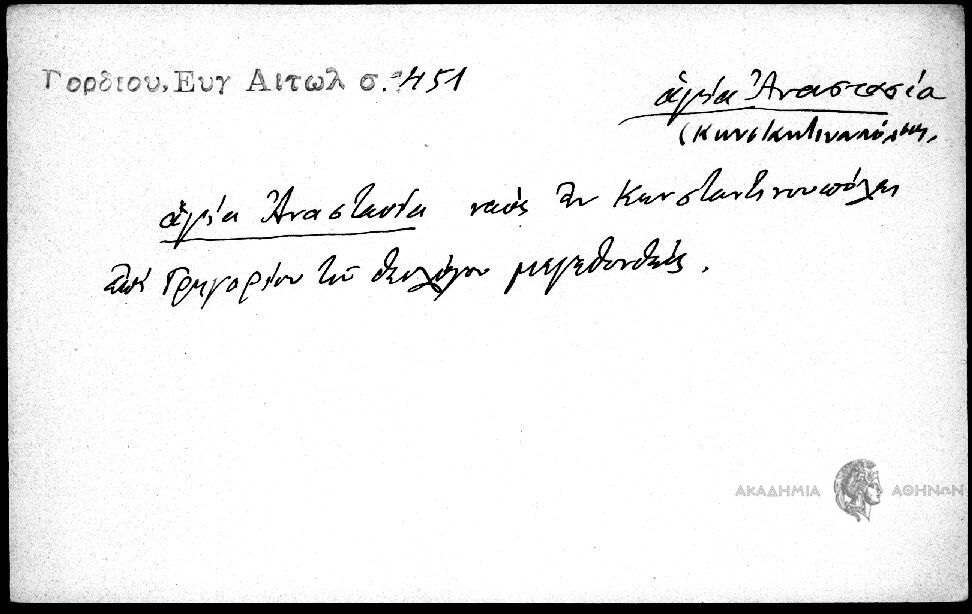 Γορδίου, Ευγ Αιτωλ σ. 451
ἁγία Ἀναστασία
(Κωνσταντινουπόλεως,
ἁγία Ἀναστασία ναὸς ἐν Κωνσταντινουπόλει
ὑπὸ Γρηγορίου τοῦ Θεολόγου μεγεθυνθείς.
ΑΚΑΔΗΜΙΑ ΑΘΗΝΩΝ